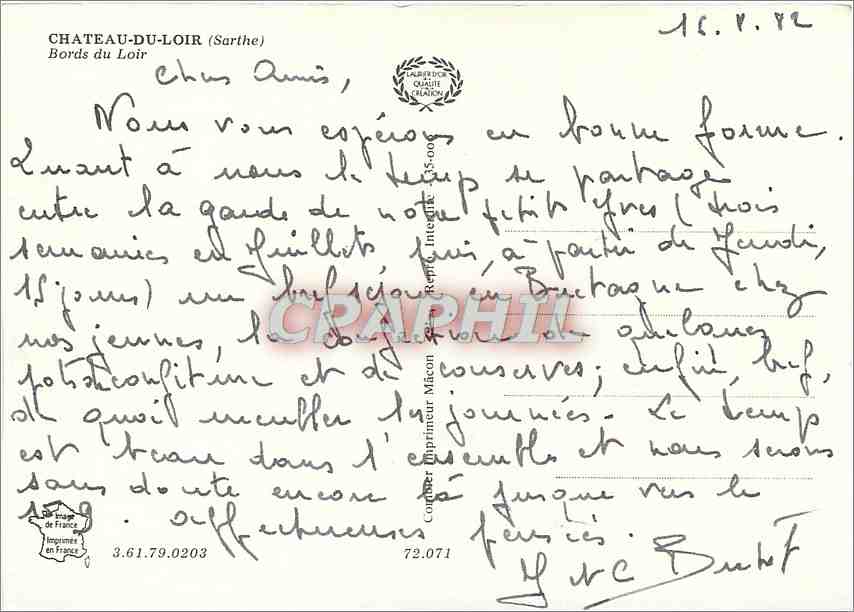 CHATEAU-DU-LOIR (Sarthe)
Bords du Loir
16.8.82
LAURIER D'OR
DE LA
QUALITE
CREATION
Chers Amis,
Nous vous espérons en bonne forme.
Quant à nous le temps se partage
entre la garde de notre petit Yves (trois
semaines en Juillet, puis, à partir de Jeudi,
15 jours) un bref séjour en Bretagne chez
nos jeunes, la confection de quelques
pots de confiture et de conserves; enfin, bref,
de quoi meubler les journées. Le temps
est beau dans l'ensemble et nous serons
sans doute encore là jusque vers le
15.9. Affectueuses pensées.
J et C
Combier Imprimeur Mâcon
Repro. Interdite - 35-00
CPAPHIL
Image
de France
Imprimée
en France
3.61.79.0203
72.071